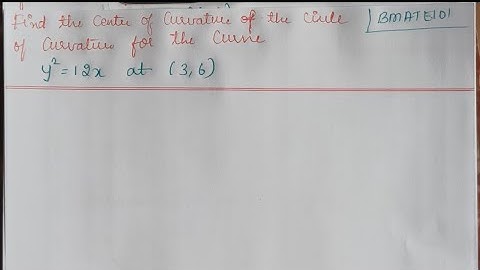 Find the Center of Curvature of the Circle
of Curvature for the Curve
BMATE101
y² = 12x at (3,6)